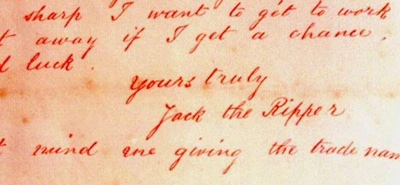 sharp I want to get to work
t away if I get a chance,
d luck.
yours truly
Jack the Ripper
t mind me giving the trade nam